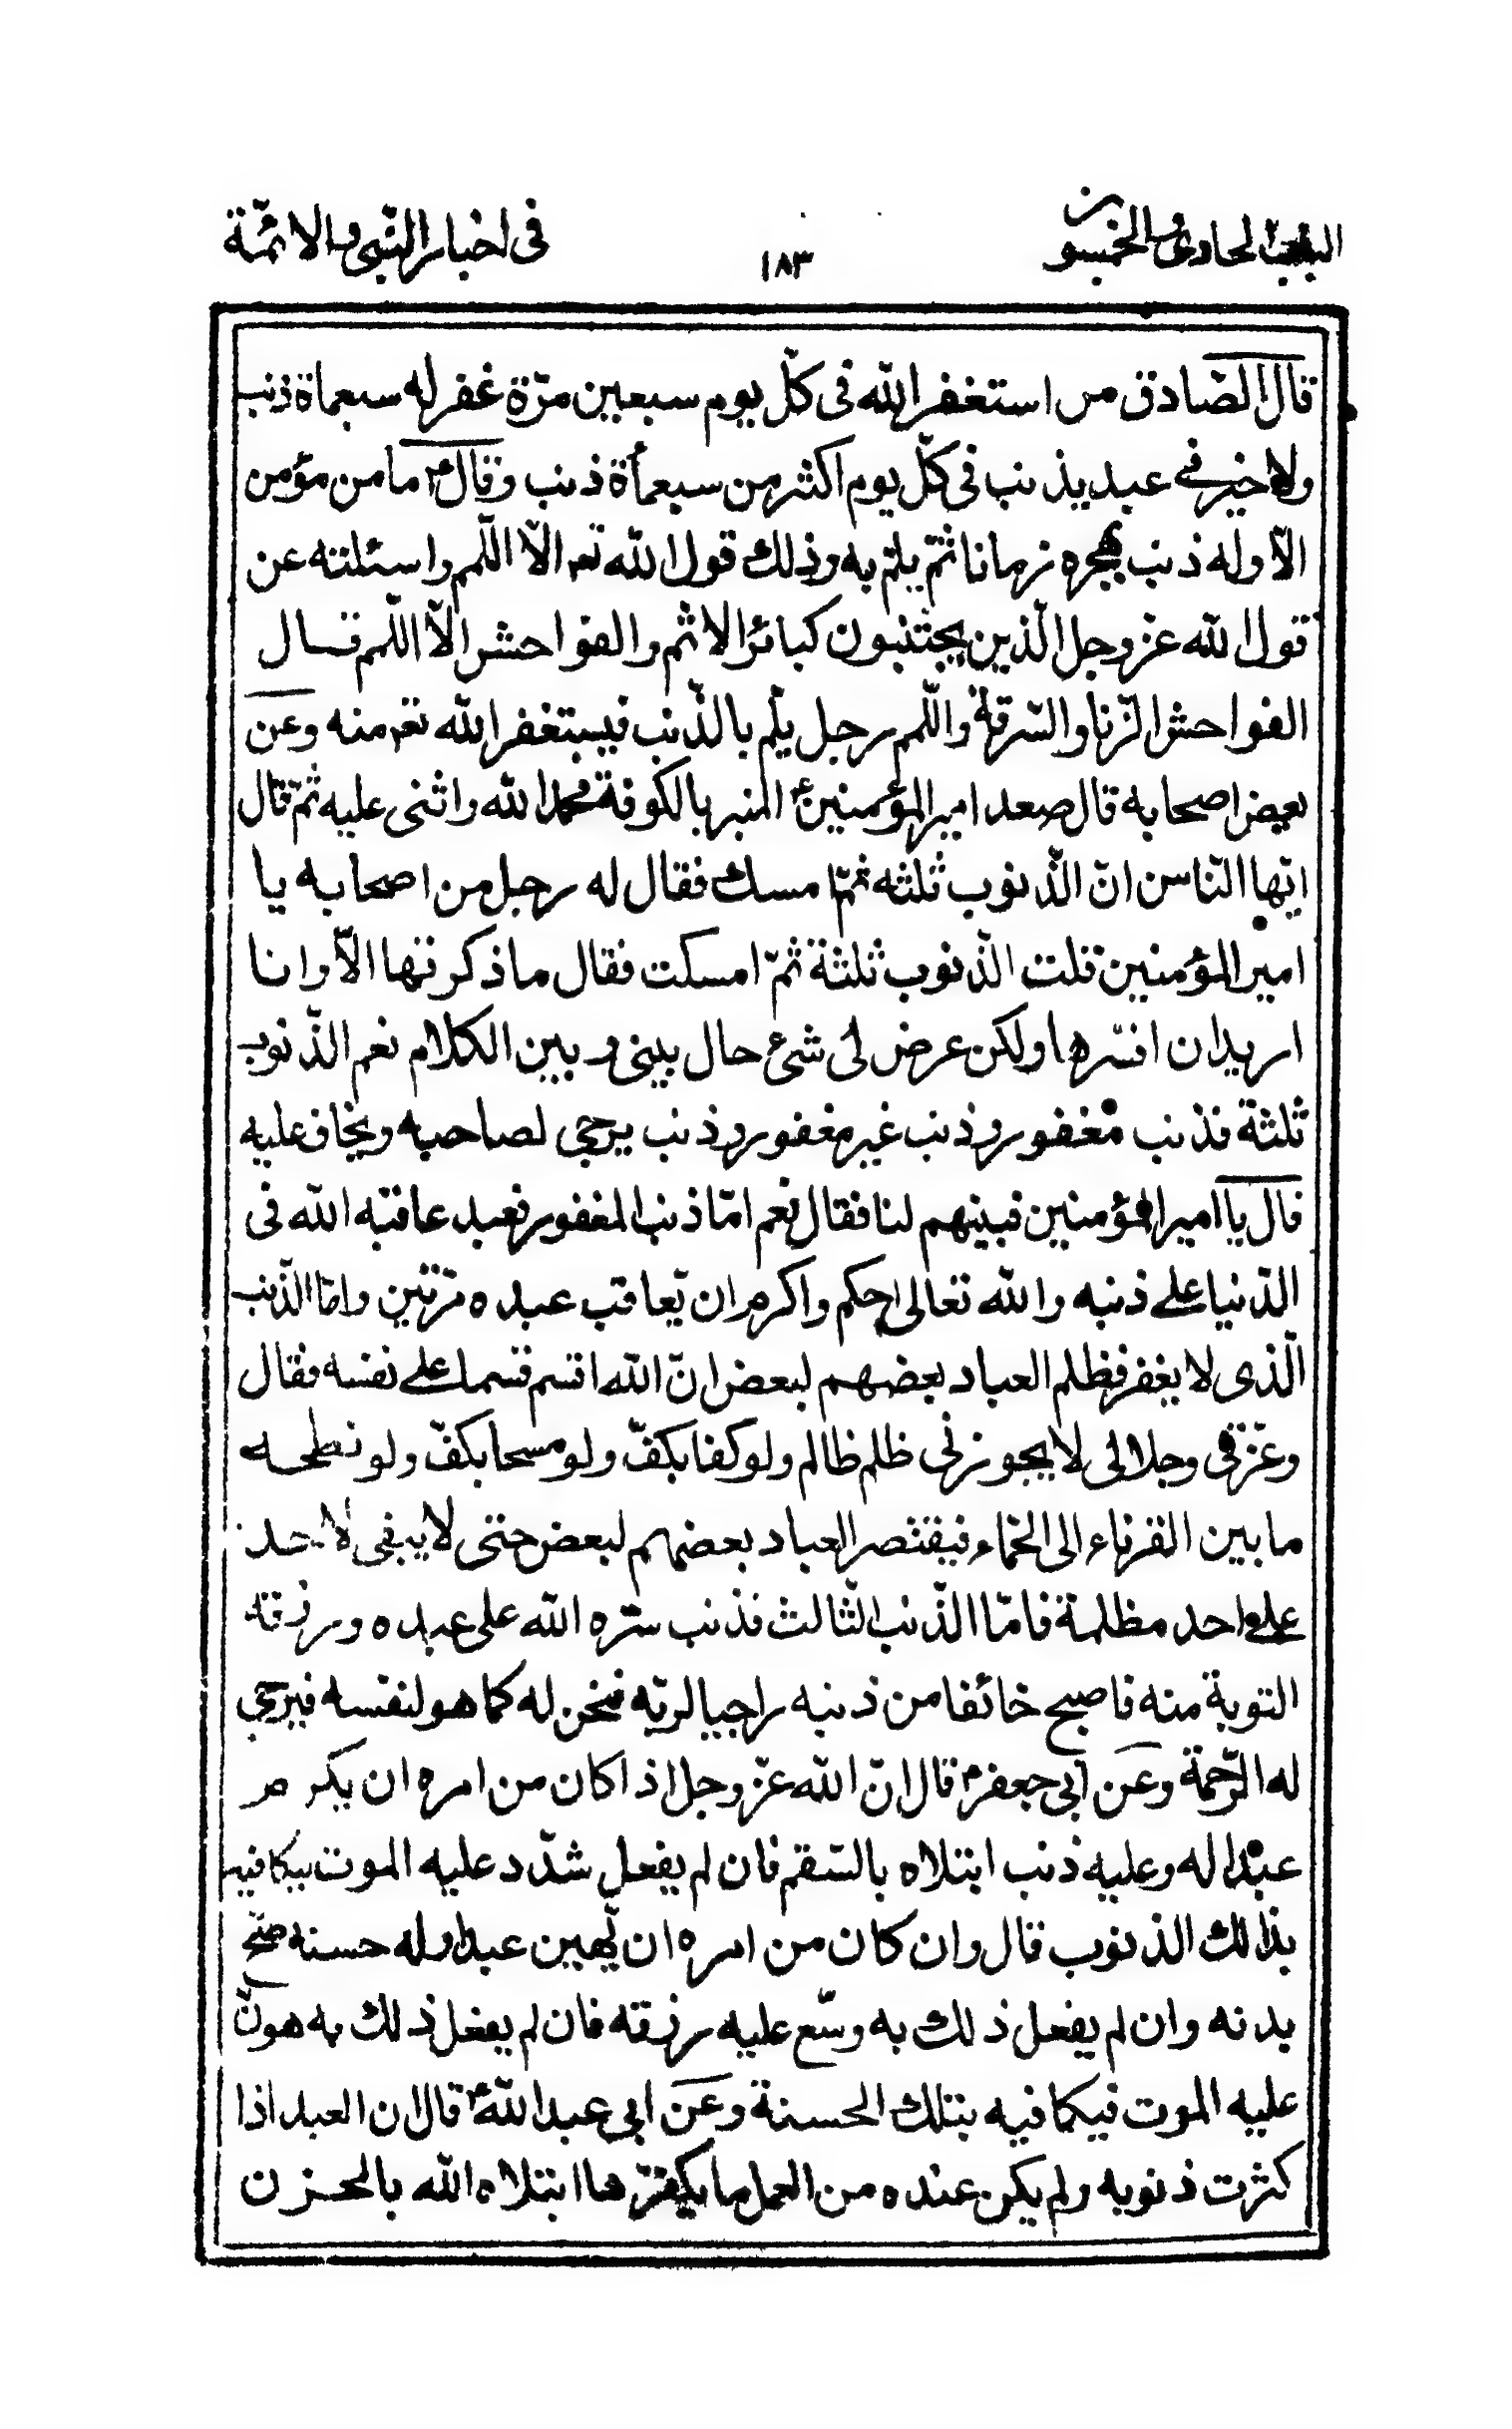 الباب الحادى والخمسون
١٨٣
فى اخبار النّبى والائمّة
قال الصّادق من استغفر الله فى كلّ يوم سبعين مرّة غفر له سبعماة ذنب
ولا خير فے عبد يذنب فى كلّ يوم اكثر من سبعمأة ذنب وقال ع ما من مؤمن
الّا وله ذنب يهجره زمانا ثمّ يلمّ به وذلك قول الله تعم الّا اللّمم واسئلته عن
قول الله عزّ وجل الّذين يجتنبون كبائر الاثم والفواحش الّا اللّمم قال
الفواحش الزّنا والسّرقة واللّمم رجل يلّم بالذّنب فيستغفر الله تعم منه وعن
بعض اصحابه قال صعد امير المؤمنين ع المنبر بالكوفة فحمد الله واثنى عليه ثمّ قال
ايّها النّاس انّ الذّنوب ثلثه ثمّ امسك فقال له رجل من اصحابه يا
امير المؤمنين قلت الذّنوب ثلثة ثمّ امسكت فقال ما ذكرتها الّا وانا
اريد ان افسّرها ولكن عرض لى شئ حال بينى وبين الكلام نعم الذّنوب
ثلثة فذنب مغفور وذنب غير مغفور وذنب يرجى لصاحبه ويخاف عليه
قال يا امير المؤمنين فبينهم لنا فقال نعم امّا ذنب المغفور فعبد عاقبه الله فى
الدّنيا على ذنبه والله تعالى احكم واكرم ان يّعاقب عبده مرّتين وامّا الذّنب
الّذى لا يغفر فظلم العباد بعضهم لبعض انّ الله اقسم قسما على نفسه فقال
وعزّتى وجلالى لا يجوزنى ظلم ظالم ولو كفا بكفّ ولو مسحا بكفّ ولو نطحه
ما بين القرناء الى الجماء فيقتصر العباد بعضهم لبعض حتى لا يبقى لاحد
على احد مظلمة فامّا الذّنب الثّالث فذنب ستره الله على عبده ورزقه
التوبة منه فاصبح خائفا من ذنبه راجيا لربّه فنحن له كما هو لنفسه فيرجى
له الرّحمة وعن ابى جعفر ع قال انّ الله عزّ وجل اذا كان من امره ان يكرم
عبدا له وعليه ذنب ابتلاه بالسّقم فان لم يفعل شدّد عليه الموت يكافيه
بذالك الذنوب قال وان كان من امره ان يّهين عبدا وله حسنه صحّ
بدنه وان لم يفعل ذلك به وسّع عليه رزقه فان لم يفعل ذلك به هوّن
عليه الموت فيكافيه بتلك الحسنة وعن ابى عبد الله ع قال ان العبد اذا
كثرت ذنوبه ولم يكن عنده من العمل ما يكفّرها ابتلاه الله بالحزن